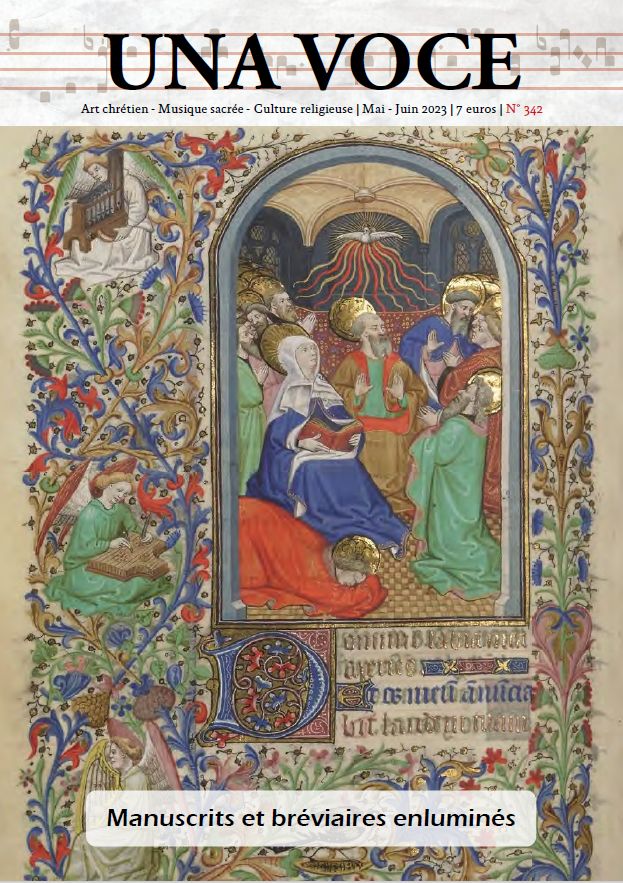 UNA VOCE
Art chrétien - Musique sacrée - Culture religieuse | Mai - Juin 2023 | 7 euros | N° 342
Et os meū ānūcia
bit laudem
Manuscrits et bréviaires enluminés